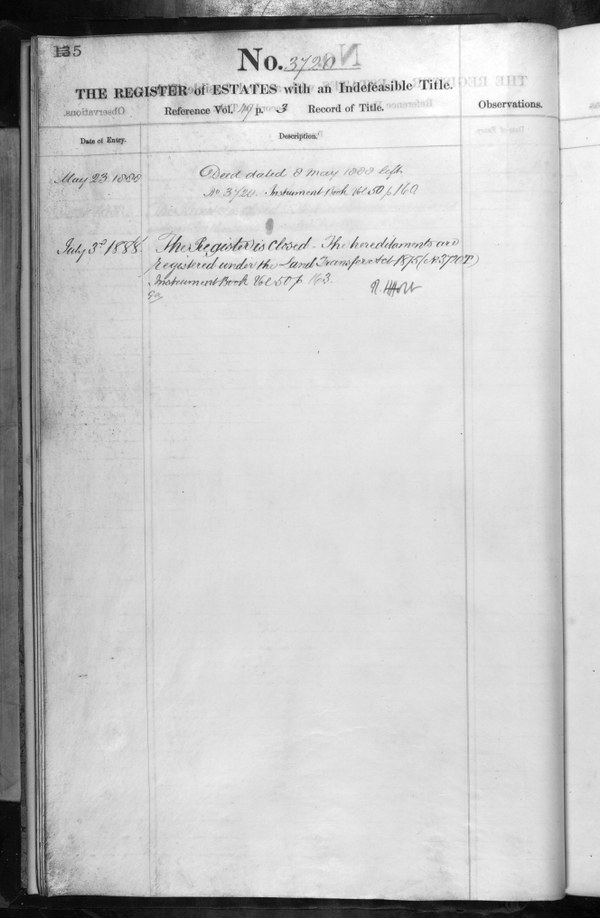 135
No. 3720
THE REGISTER of ESTATES with an Indefeasible Title.
Reference Vol. 19 p. 3 Record of Title.
Observations.
Date of Entry.
Description.
May 23. 1888
Deed dated 8 May 1888 left.
No 3720. Instrument Book Vol 50 p 160
July 3d 1888.
The Register is closed. The hereditaments are
registered under the Land Transfer Act 1875
Instrument Book Vol 50 p 163.